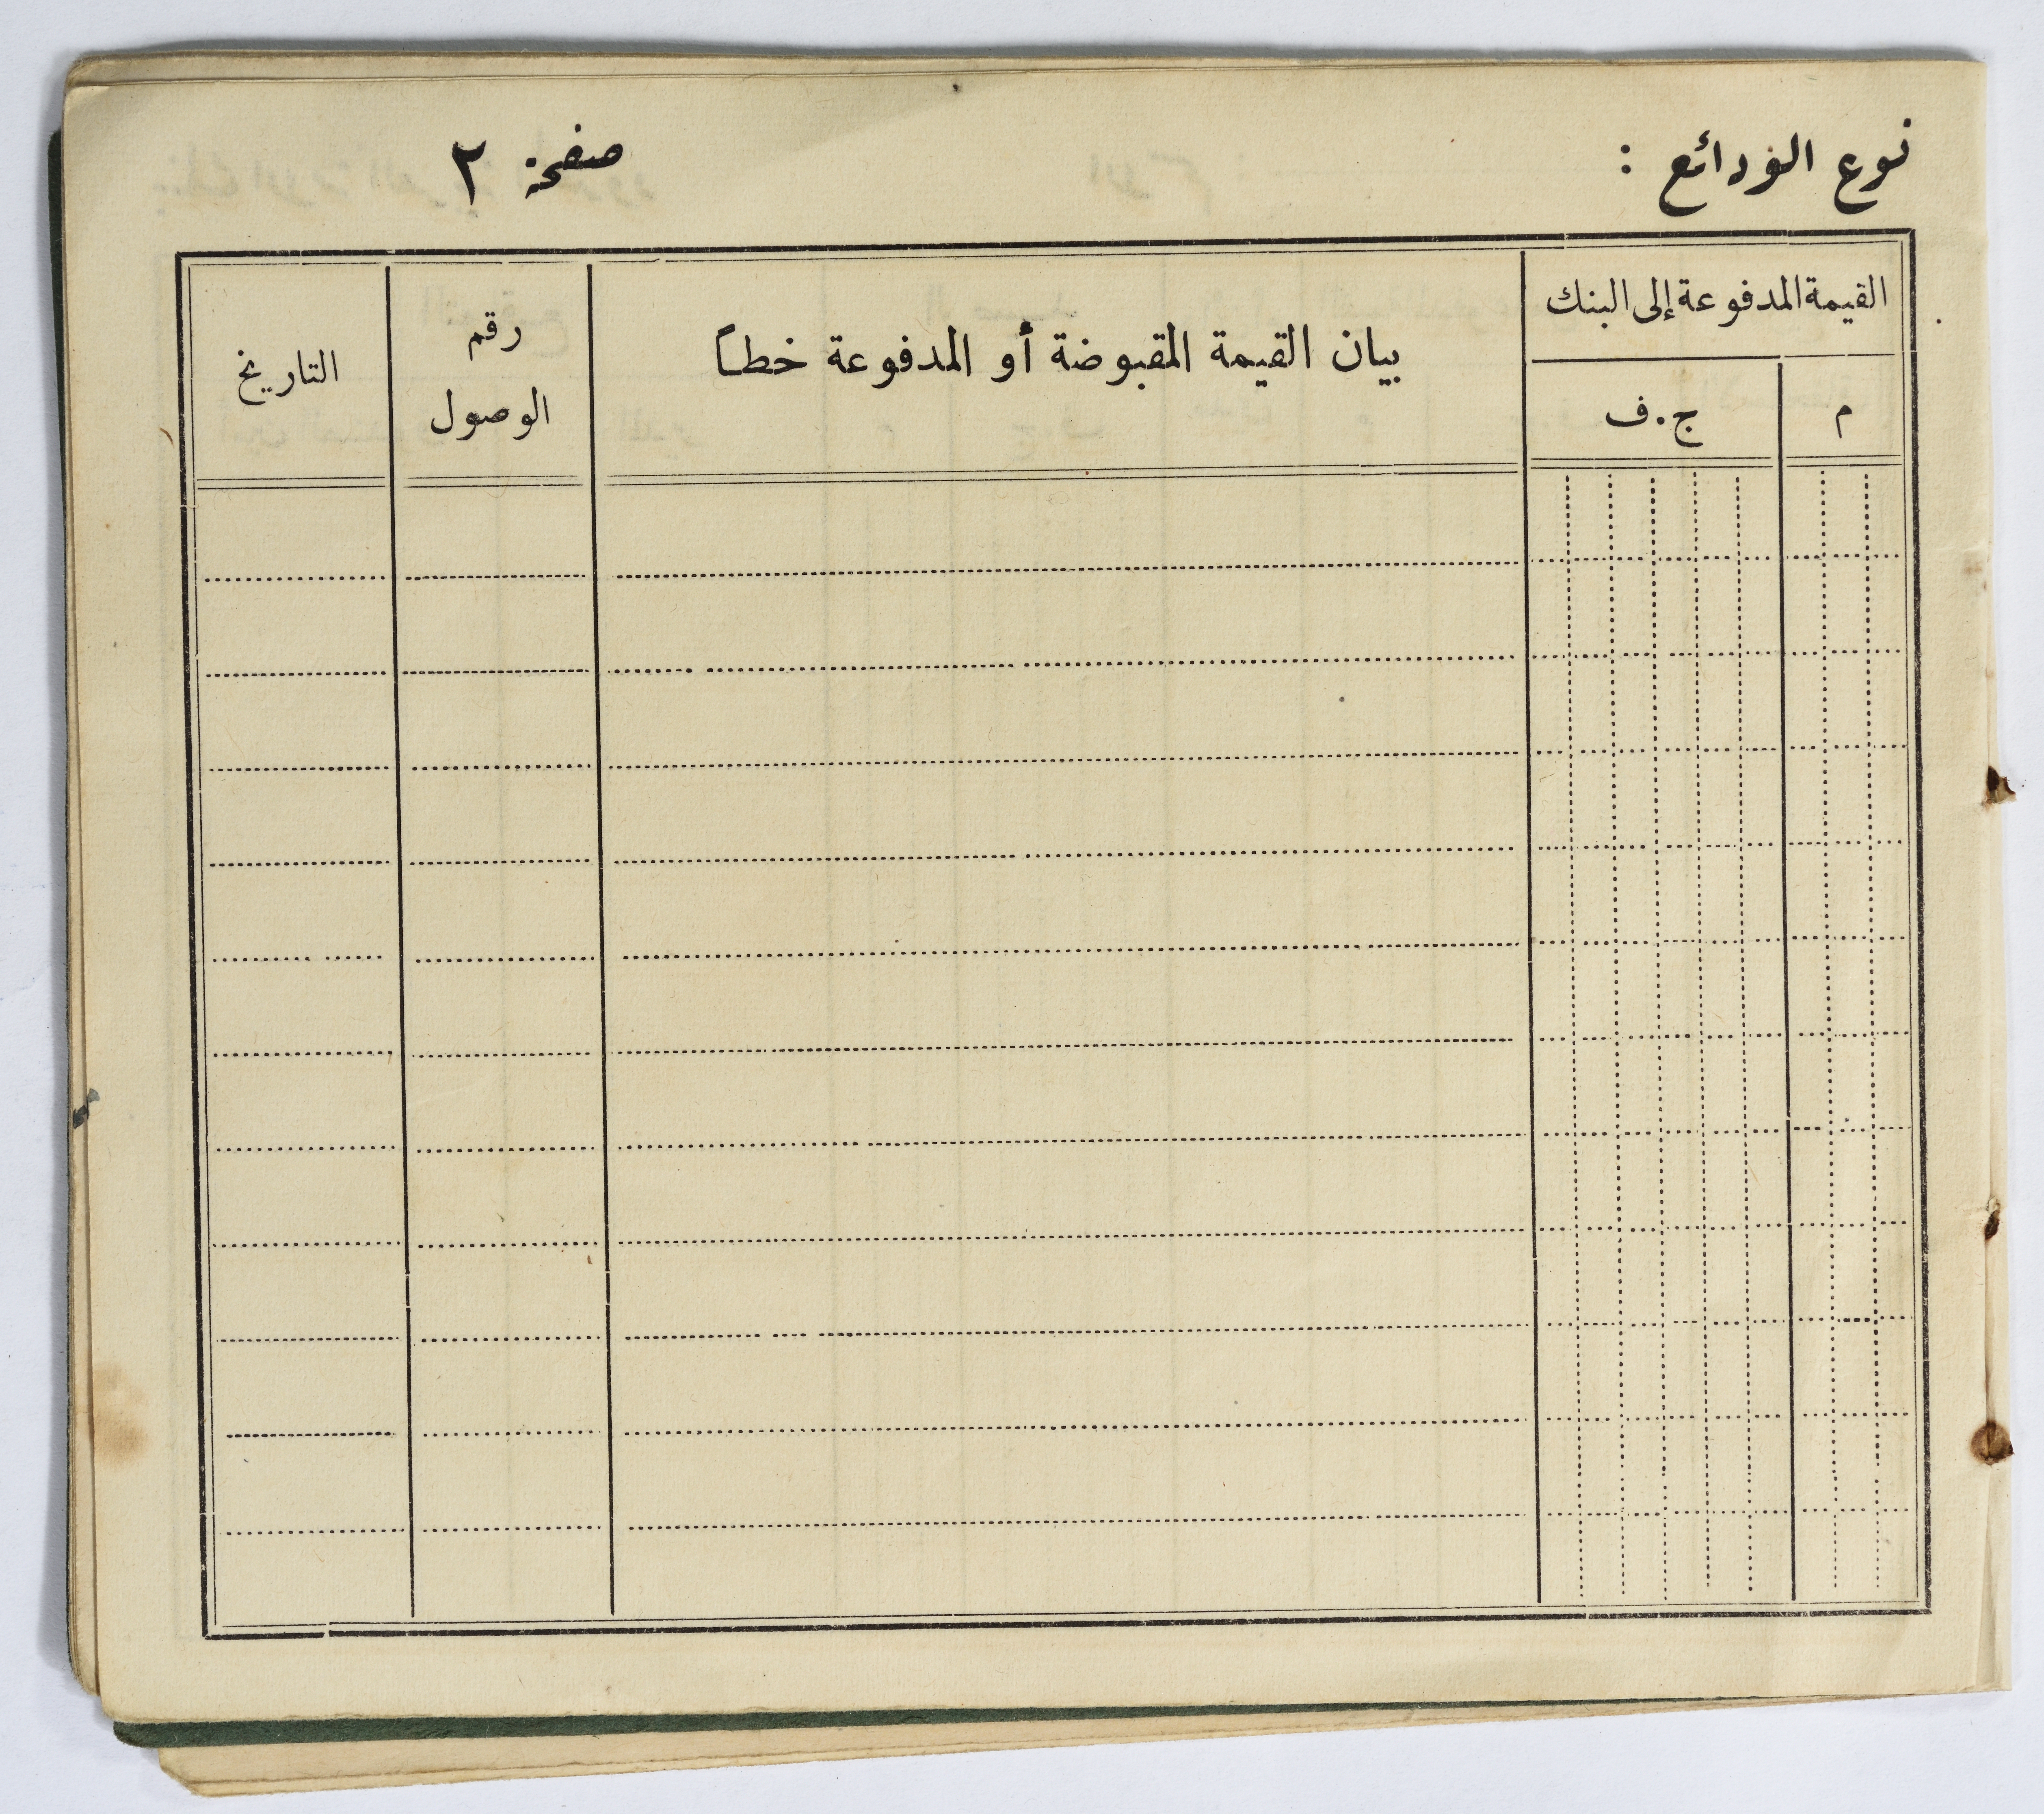 نوع الودائع :
صفحة ٢
القيمة المدفوعة إلى البنك
م
ج.ف
بيان القيمة المقبوضة أو المدفوعة خطاً
رقم
الوصول
التاريخ